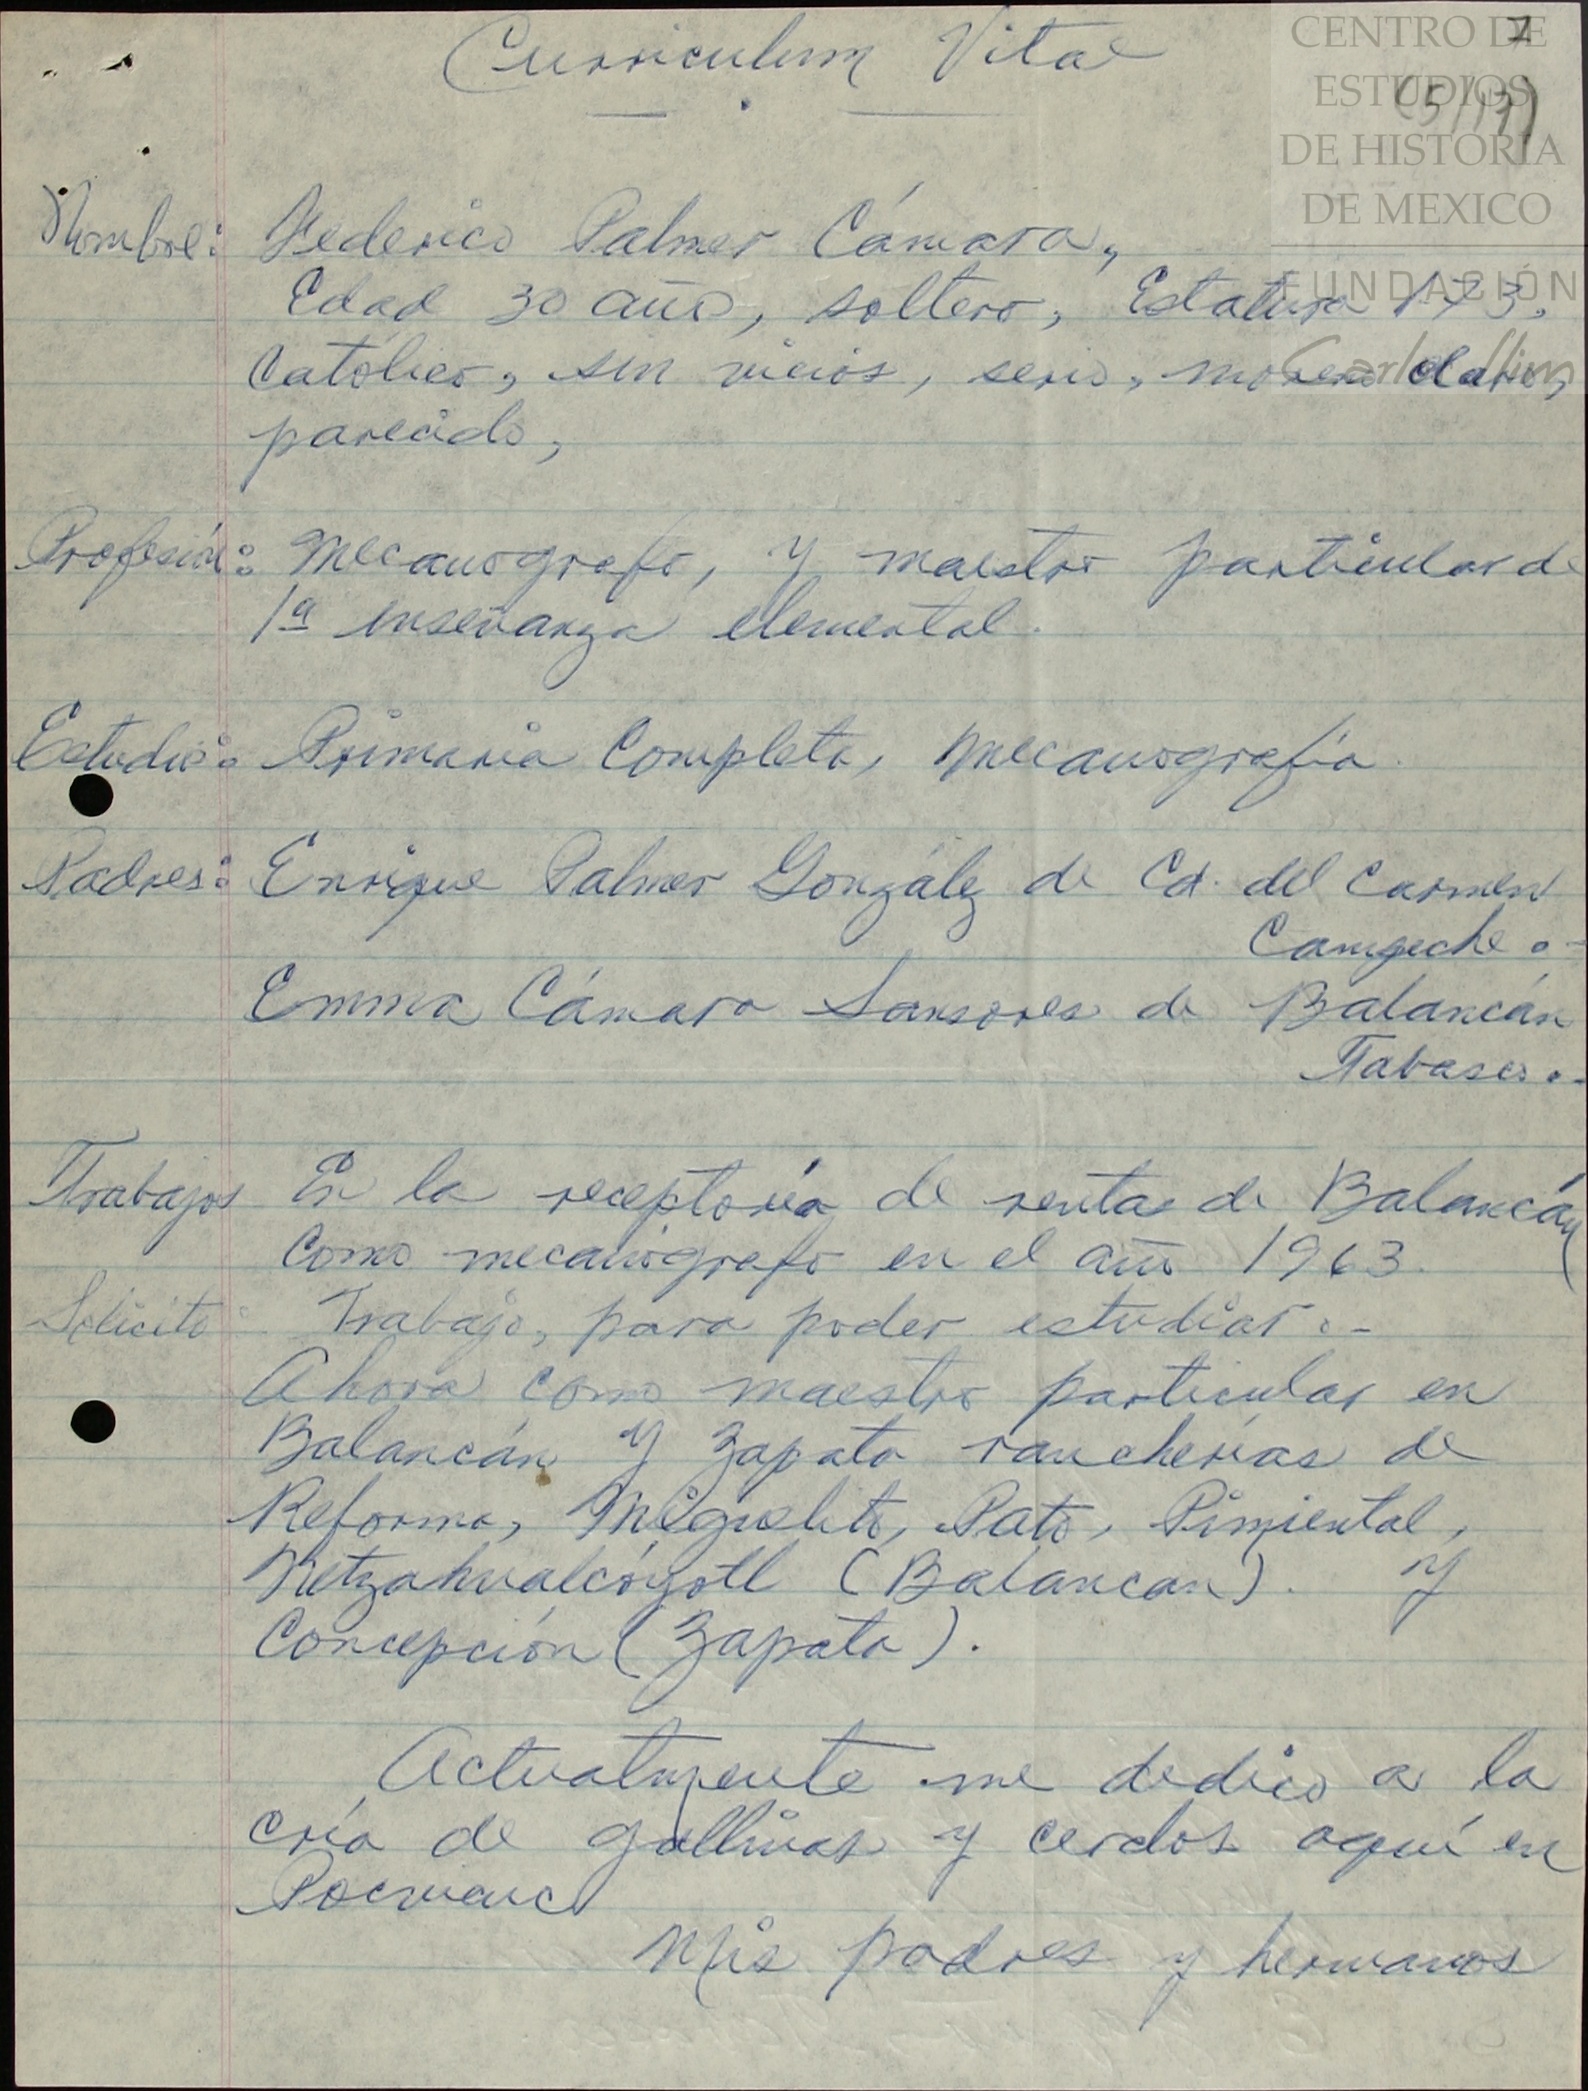 Curriculum Vitae
7
(5/17)
CENTRO DE
ESTUDIOS
DE HISTORIA
DE MEXICO
FUNDACIÓN
Carlos Slim
Nombre: Federico Palmer Cámara,
Edad 30 años, soltero, Estatura 1.73.
Católico, sin vicios, serio, moreno claro,
parecido,
Profesión: Mecanografo, y maestro particular de
1ª enseñanza elemental.
Estudio: Primaria Completa, Mecanografía.
Padres: Enrique Palmer González de Cd. del Carmen
Campeche.-
Emma Cámara Sansores de Balancán
Tabasco.-
Trabajos En la receptoría de rentas de Balancán
como mecanógrafo en el año 1963.
Solicito: Trabajo, para poder estudiar.-
Ahora como maestro particular en
Balancán y Zapata rancherías de
Reforma, Miguelito, Pato, Pimiental,
Netzahualcóyotl (Balancan). y
Concepción (Zapata).
Actualmente me dedico a la
cría de gallinas y cerdos aquí en
Pocvicuc
Mis padres y hermanos